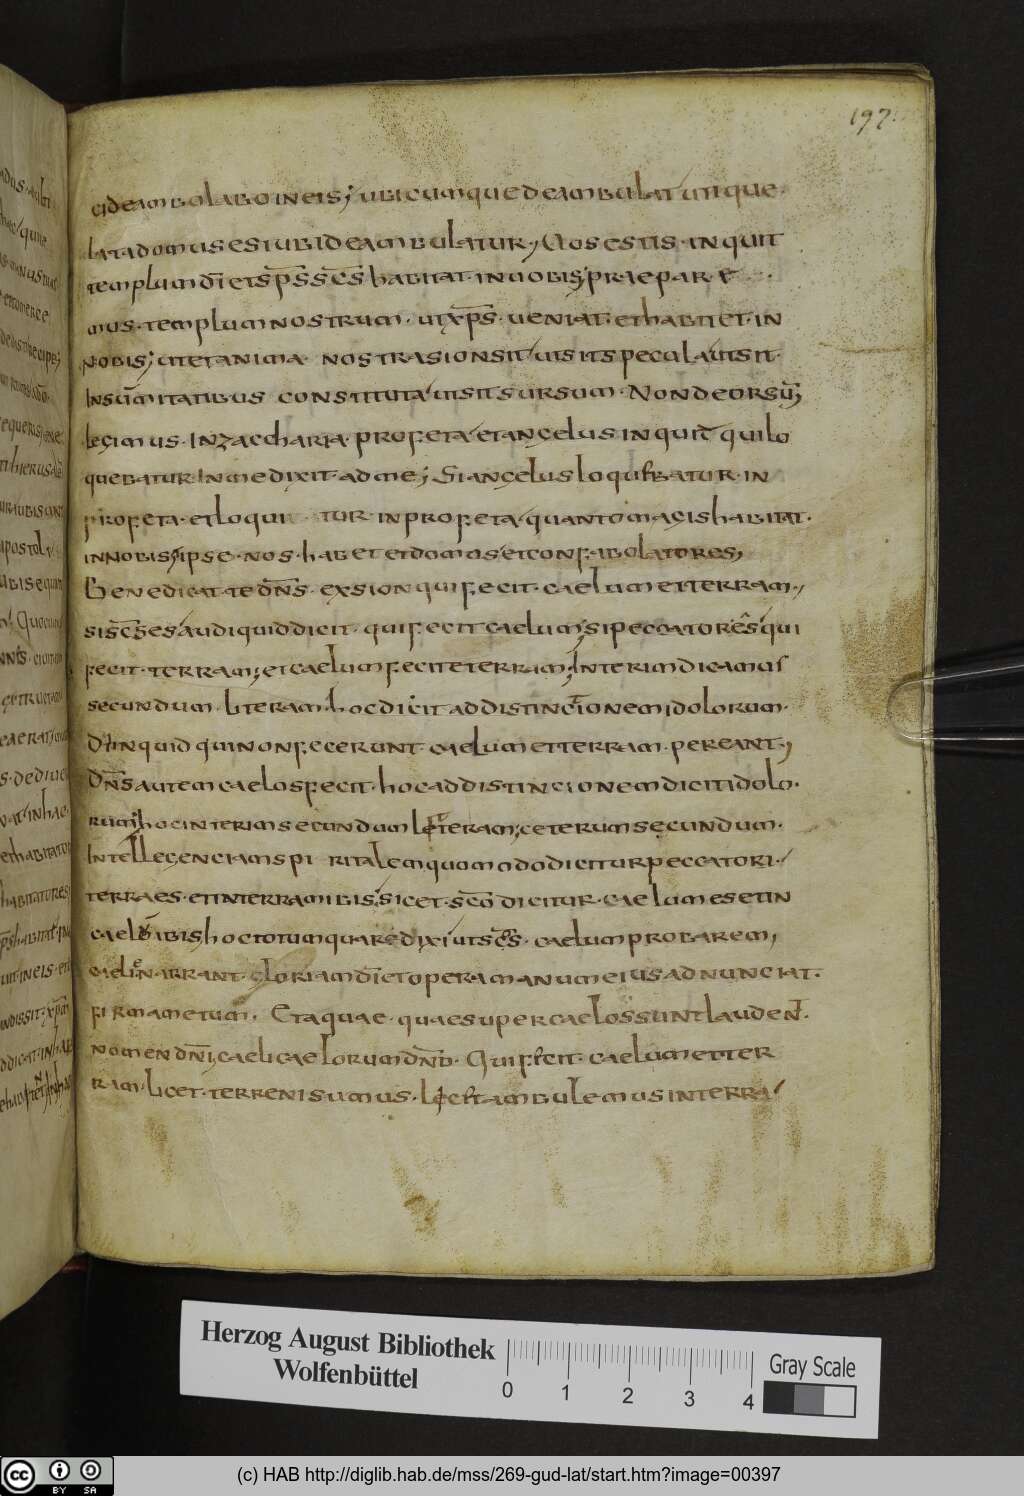 197.
cideambolaboineis; ubicumque deambulat utique
lat.adomus est ubi deambulatur, Uos estis. inquit
templum dī et sp̄s sc̄s habitat. in uobis; praepare
mus. templum nostrum. ut xp̄s. ueniat. et habitet. in
nobis; ut et anima nostra sion sit ut sit specula ut sit.
In sum̄itatibus constituta ut sit sursum. Non deorsū;
legimus. In zaccharia. profeta et angelus inquit qui lo
quebatur. In me dixit. ad me; Si angelus loquebatur. in
profeta. et loqui tur in profeta quanto magis habitat.
in nobis ipse. nos. habet et domos et confabolatores;
Benedicat. te dn̄s. ex sion qui fecit. caelum et terram.,
si sc̄s es audi quid dicit. qui fecit caelum si peccator es qui
fecit. terram; et caelum fecit et terram; Interim dicamus
secundum. literam. hoc dicit ad distinctionem idolorum.
Dii inquid qui non fecerunt caelum et terram. pereant.,
Dn̄s autem caelos fecit. hoc ad distincionem dicit idolo.
rum; hoc interim secundum literam; ceterum secundum.
Intellegenciam spi ritalem quomodo dicitur peccatori.
terra es. et in terram ibis; sicet. sc̄o dicitur. caelum es et in
caelum ibis hoc totum quare dixi ut sc̄s. caelum probarem;
caeli enarrant. gloriam dī et opera manum eius adnunciat.
firmametum. Et aquae. quae super caelos sunt lauden̄t.
nomen dn̄i; caeli caelorum dn̄o. Qui fecit. caelum et ter
ram. licet. terreni sumus. licet ambulemus in terra
Herzog August Bibliothek
Wolfenbüttel
0 1 2 3 4
Gray Scale
cc BY SA
(c) HAB http://diglib.hab.de/mss/269-gud-lat/start.htm?image=00397